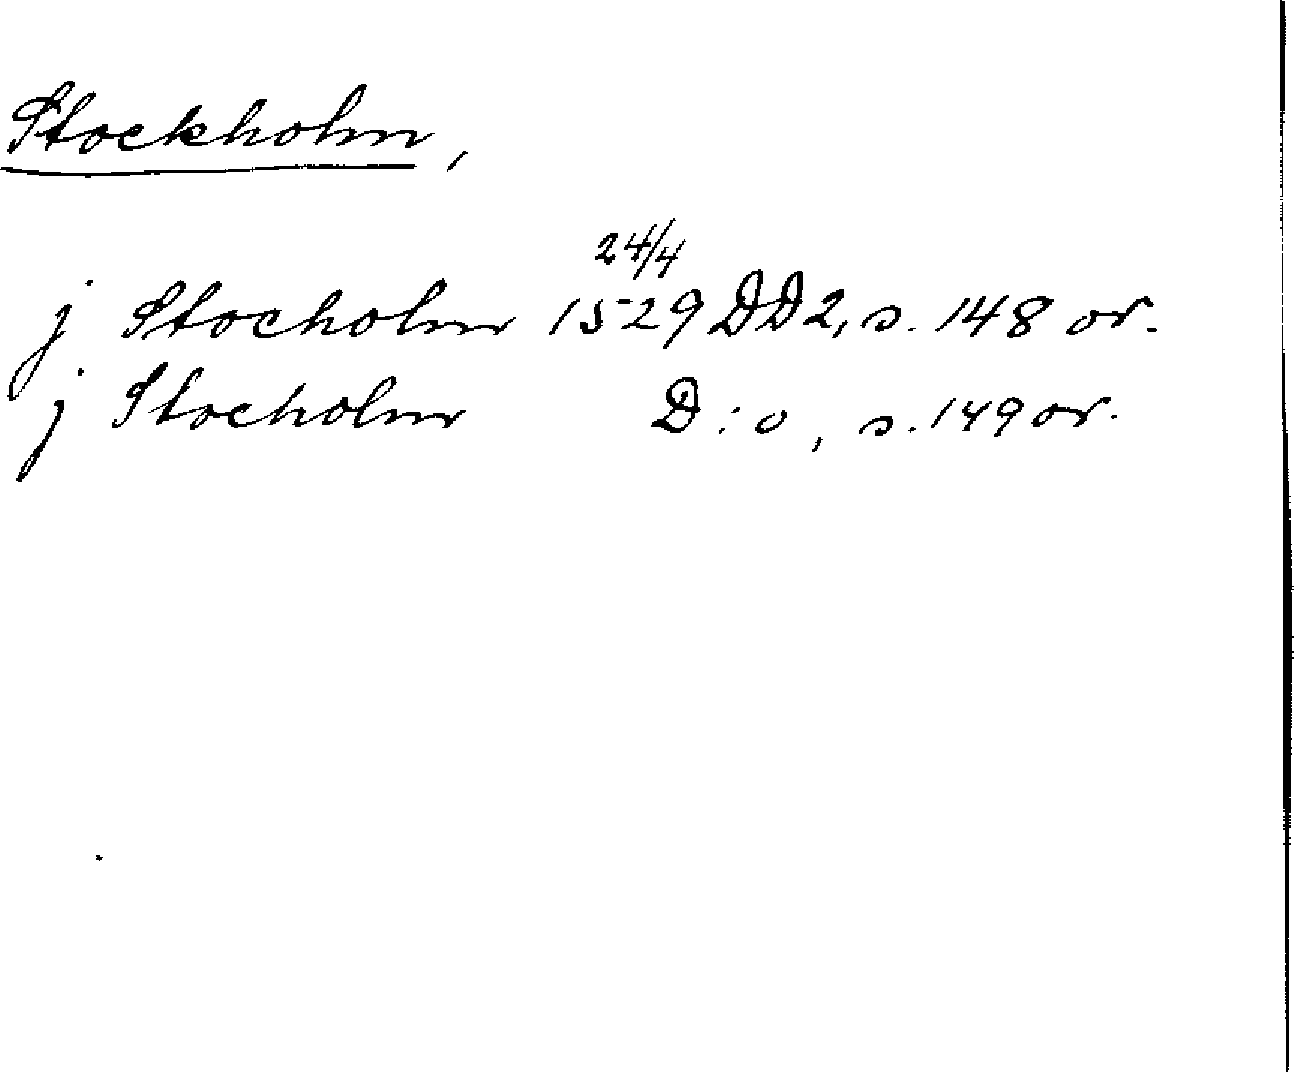 Stockholm,
24/4
j Stocholm 1529 DD2, s. 148 or.
j Stocholm D:o, s. 149 or.